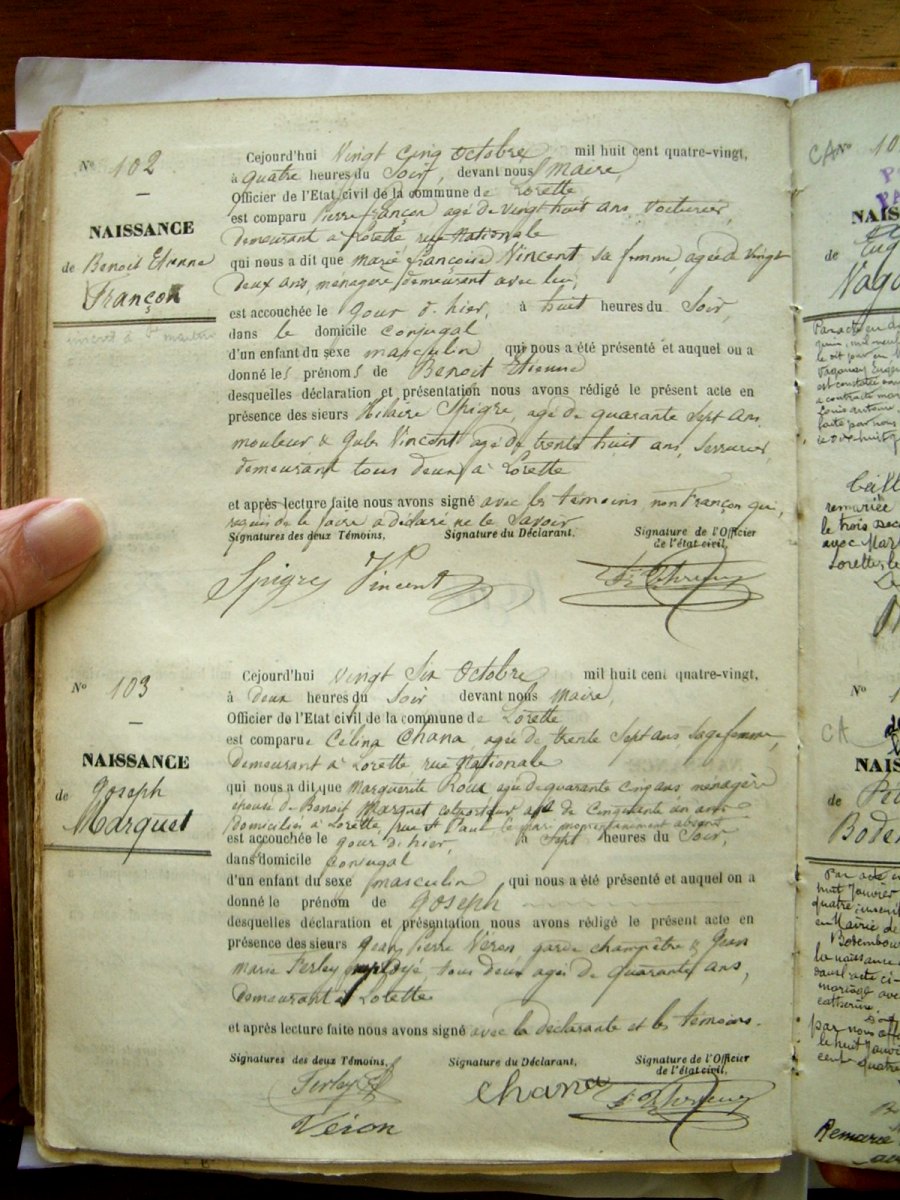 No 102
NAISSANCE
de Benoit Etienne
Françon
Cejourd'hui Vingt Cinq Octobre mil huit cent quatre-vingt,
à quatre heures du Soir, devant nous Maire
Officier de l'Etat civil de la commune de Lorette
est comparu Pierre Françon agé de vingt huit ans Voiturier,
demeurant à Lorette rue Nationale
qui nous a dit que Marie Françoise Vincent sa femme, agée de Vingt
deux ans, ménagère, demeurant avec lui,
est accouchée le jour d'hier, à huit heures du Soir,
dans le domicile conjugal
d'un enfant du sexe masculin qui nous a été présenté et auquel on a
donné les prénoms de Benoit Etienne
desquelles déclaration et présentation nous avons rédigé le présent acte en
présence des sieurs Hilaire Spigre, agé de quarante Sept ans,
mouleur & Jules Vincent agé de trente huit ans, Serrurier,
demeurant tous deux à Lorette
et après lecture faite nous avons signé avec les témoins non Françon qui,
requis de le faire a déclaré ne le Savoir
Signatures des deux Témoins, Signature du Déclarant, Signature de l'Officier
de l'état civil,
Spigre Vincent
No 103
NAISSANCE
de Joseph
Marquet
Cejourd'hui Vingt Six Octobre mil huit cent quatre-vingt,
à deux heures du Soir devant nous Maire,
Officier de l'Etat civil de la commune de Lorette
est comparue Célina Chana, agée de trente Sept ans, Sage femme,
demeurant à Lorette rue Nationale
qui nous a dit que Marguerite Roux agée de quarante cinq ans ménagère
épouse de Benoit Marquet colporteur agé de Cinquante un ans
domiciliés à Lorette, rue St Paul le mari momentanément absent
est accouchée le jour d'hier, à Sept heures du Soir,
dans domicile Conjugal
d'un enfant du sexe masculin qui nous a été présenté et auquel on a
donné le prénom de Joseph
desquelles déclaration et présentation nous avons rédigé le présent acte en
présence des sieurs Jean Pierre Véron garde champêtre & Jean
marie Ferley employé, tous deux agés de quarante ans,
demeurant à Lorette
et après lecture faite nous avons signé avec la déclarante et les témoins.
Signatures des deux Témoins, Signature du Déclarant, Signature de l'Officier
de l'état civil,
Ferley Chana
Véron
CA No 10
de Eug
CA No
de
Boden
remariée
le trois
avec
Lorette, le
Par acte
huit Janvier
quatre
en Mairie de
la naissance
dans l'acte ci-
mariage ave
catherine
par nous
le huit Janvi
cent quatre
Remarié